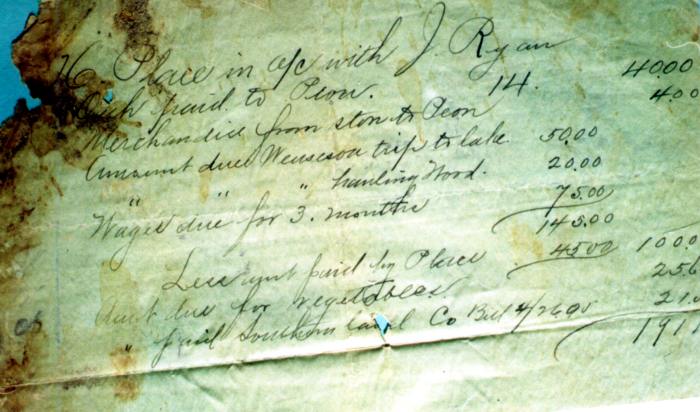 H Place in a/c with J. Ryan
Cash paid to Peon. 14. 4000
Merchandise from store to Peon 4.00
Amount due trip to lake. 50.00
" " " hauling Wood. 20.00
Wages due for 3. months 75.00
145.00
Less amt paid by Place 45.00 100.0
Amt due for vegetables 25
" paid Southern Land Co Bill 4/26 21.
191